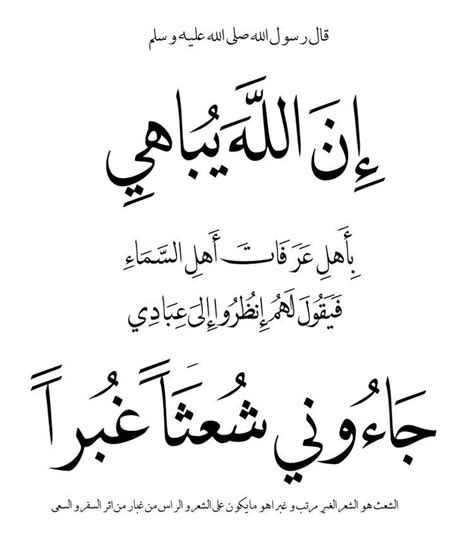 قال رسول الله صلى الله عليه و سلم
إِنَ اللَّهَ يُباهي
بِأَهلِ عَرَفَاتَ أَهلِ السَّمَاءِ
فَيَقُولَ لَهُم إِنظُرُوا إِلىَ عِبَادِي
جَاءُوني شُعثَاً غُبُراً
الشعث هو الشعر الغير مرتب و غبرا هو ما يكون على الشعر و الراس من غبار من اثر السفر و السعى